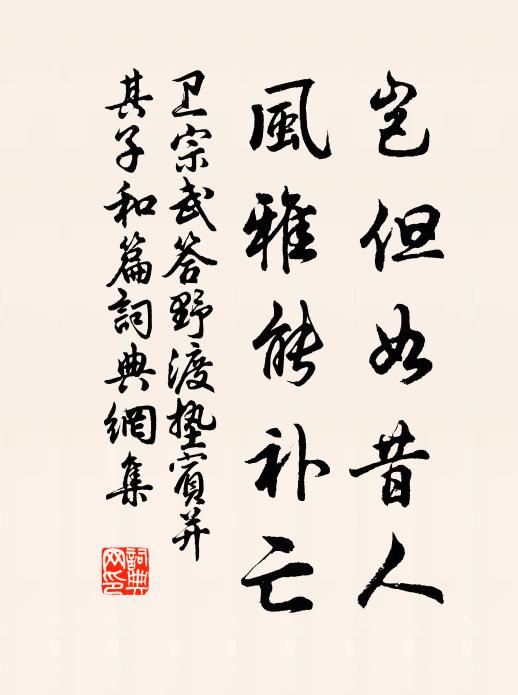 岂但如昔人
風雅能补亡
卫宗武答野渡塾賓并
其子和篇詞典網集
詞典
网印